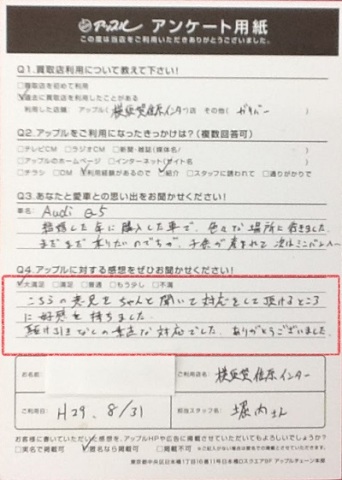 アップル アンケート用紙
この度は当店をご利用いただきありがとうございました。
Q1.買取店利用について教えて下さい!
□買取店を初めて利用
☑過去に買取店を利用したことがある
利用した店舗: アップル( 横浜青葉インター店 その他( ガリバー
Q2.アップルをご利用になったきっかけは?(複数回答可)
□テレビCM □ラジオCM □新聞・雑誌(媒体名/
□アップルのホームページ □インターネット(サイト名
□チラシ □DM ☑利用経験があるので ☑紹介 □スタッフに誘われて □通りがかりで
Q3.あなたと愛車との思い出をお聞かせください!
車名: Audi Q5
結婚した年に購入した車で、色々な場所に行きました。
まだまだ乗りたいのですが、子供が産まれて次はミニバンへ
Q4.アップルに対する感想をぜひお聞かせください!
☑大満足 □満足 □普通 □もう少し □不満
こちらの意見をちゃんと聞いて対応をして頂けるところ
に好感を持ちました。
駆け引きなしの素直な対応でした。ありがとうございました。
お名前:
ご利用店名: インター
ご利用日: H29. 8/31
担当スタッフ名: 堀内さん
お客様に書いていただいた感想を、アップルHPや広告に掲載させていただいてもよろしいでしょうか?
□実名で掲載可 ☑匿名なら掲載可 □掲載不可
東京都中央区日本橋1丁目 アップルチェーン本部